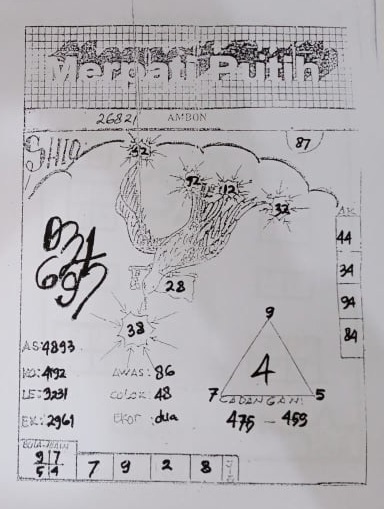 Merpati Putih
26821 AMBON
SHIO
87
52
92
12
32
28
38
AX
44
34
94
84
AS: 4893
KO: 4192
LE: 3231
EK: 2961
AWAS: 86
COLOK: 48
EKOR: dua
9
4
7
5
CADANGAN:
475 - 459
9 7
5 4
7 9 2 8